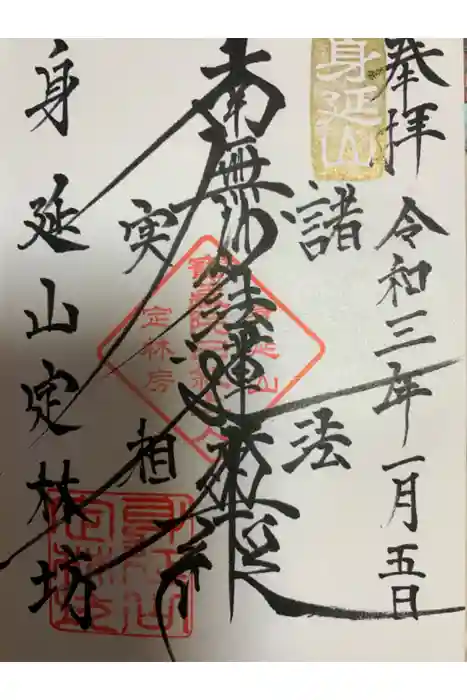 奉拝 令和三年一月五日
身延山
諸法
南無妙法蓮華経
実相
身延山
定林房
身延山定林坊